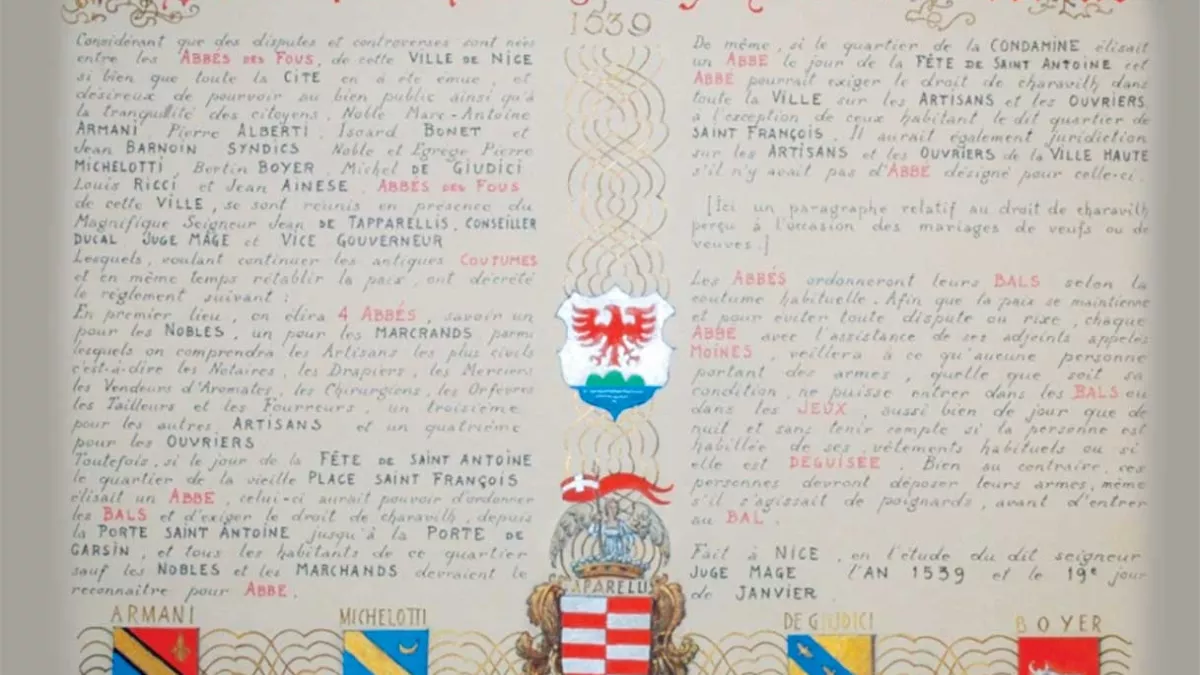 1539
Considérant que des disputes et controverses sont nées
entre les ABBÉS DES FOUS, de cette VILLE DE NICE
si bien que toute la CITE en a été émue, et
désireux de pourvoir au bien public ainsi qu'à
la tranquillité des citoyens, Noble Marc-Antoine
ARMANI, Pierre ALBERTI, Isoard BONET et
Jean BARNOIN SYNDICS Noble et Egrège Pierre
MICHELOTTI, Bertin BOYER, Michel DE GIUDICI
Louis RICCI et Jean AINESE, ABBÉS DES FOUS
de cette VILLE, se sont réunis en présence du
Magnifique Seigneur Jean DE TAPPARELLIS, CONSEILLER
DUCAL JUGE MAGE et VICE GOUVERNEUR
Lesquels, voulant continuer les antiques COUTUMES
et en même temps rétablir la paix, ont décrété
le règlement suivant :
En premier lieu, on élira 4 ABBÉS, savoir un
pour les NOBLES, un pour les MARCRANDS parmi
lesquels on comprendra les Artisans les plus civils
c'est-à-dire les Notaires, les Drapiers, les Merciers
les Vendeurs d'Aromates, les Chirurgiens, les Orfèvres
les Tailleurs et les Fourreurs, un troisième
pour les autres ARTISANS et un quatrième
pour les OUVRIERS
Toutefois, si le jour de la FÊTE DE SAINT ANTOINE
le quartier de la vieille PLACE SAINT FRANÇOIS
élisait un ABBÉ, celui-ci aurait pouvoir d'ordonner
les BALS et d'exiger le droit de charavilh, depuis
la PORTE SAINT ANTOINE jusqu'à la PORTE DE
GARSIN, et tous les habitants de ce quartier
sauf les NOBLES et les MARCHANDS devraient le
reconnaître pour ABBE.
De même, si le quartier de la CONDAMINE élisait
un ABBÉ le jour de la FÊTE DE SAINT ANTOINE cet
ABBÉ pourrait exiger le droit de charavilh dans
toute la VILLE sur les ARTISANS et les OUVRIERS
à l'exception de ceux habitant le dit quartier de
SAINT FRANÇOIS. Il aurait également juridiction
sur les ARTISANS et les OUVRIERS de la VILLE HAUTE
s'il n'y avait pas d'ABBÉ désigné pour celle-ci.
[Ici un paragraphe relatif au droit de charavilh
perçu à l'occasion des mariages de veufs ou de
veuves.]
Les ABBÉS ordonneront leurs BALS selon la
coutume habituelle. Afin que la paix se maintienne
et pour éviter toute dispute ou rixe, chaque
ABBÉ avec l'assistance de ses adjoints appelés
MOINES, veillera à ce qu'aucune personne
portant des armes, quelle que soit sa
condition, ne puisse entrer dans les BALS ou
dans les JEUX, aussi bien de jour que de
nuit et sans tenir compte si la personne est
habillée de ses vêtements habituels ou si
elle est DEGUISÉE. Bien au contraire, ces
personnes devront déposer leurs armes, même
s'il s'agissait de poignards, avant d'entrer
au BAL.
Fait à NICE, en l'étude du dit seigneur
JUGE MAGE l'AN 1539 et le 19e jour
de JANVIER.
APARELLI
ARMANI
MICHELOTTI
DE GIUDICI
BOYER